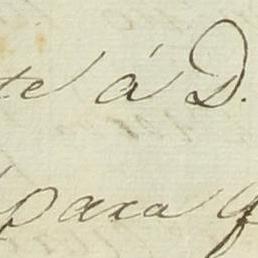 te á D.
para q